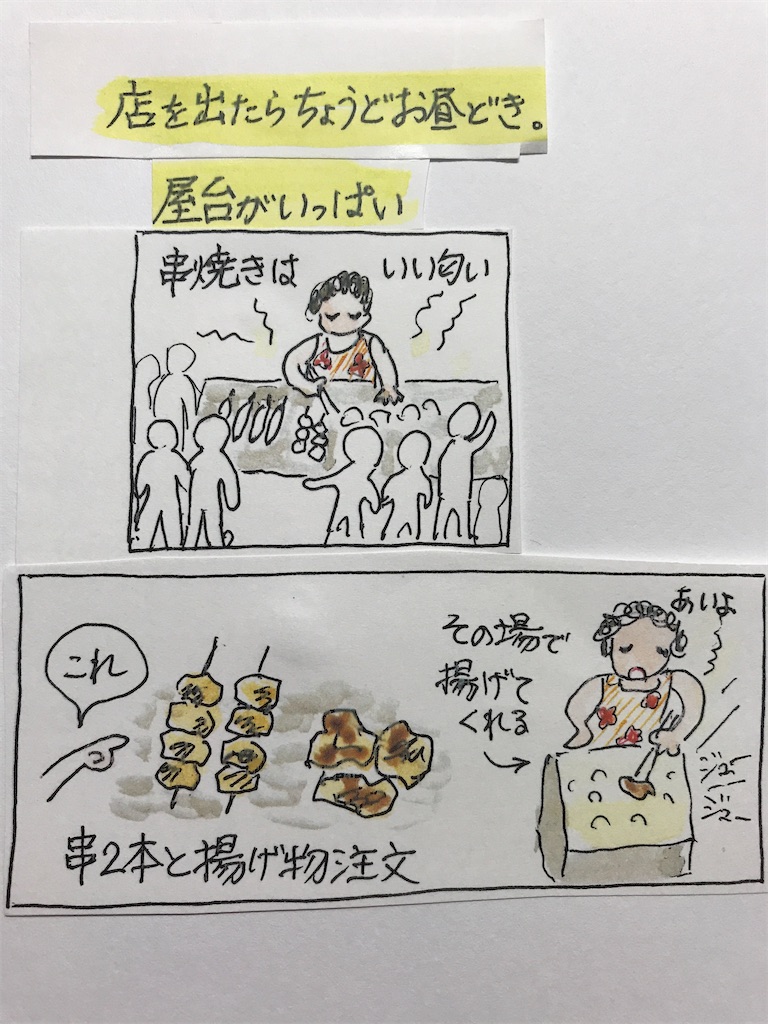 店を出たらちょうどお昼どき。
屋台がいっぱい
串焼きは いい匂い
これ
その場で
揚げて
くれる
あいよ
ジュー
ジュー
串2本と揚げ物注文